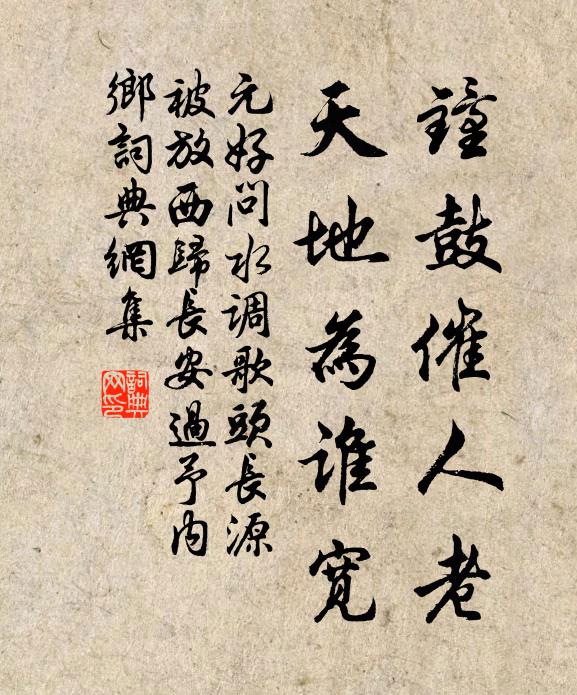 鐘鼓催人老
天地為誰寬
元好問水调歌頭長源
被放西歸長安過予內
鄉詞典網集
詞典
网印